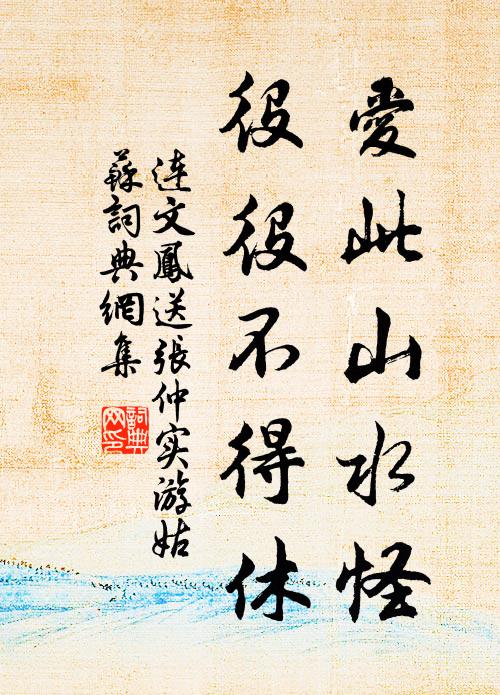 愛此山水怪
役役不得休
連文鳳送張仲实游姑
蘇詞典網集
詞典
网印